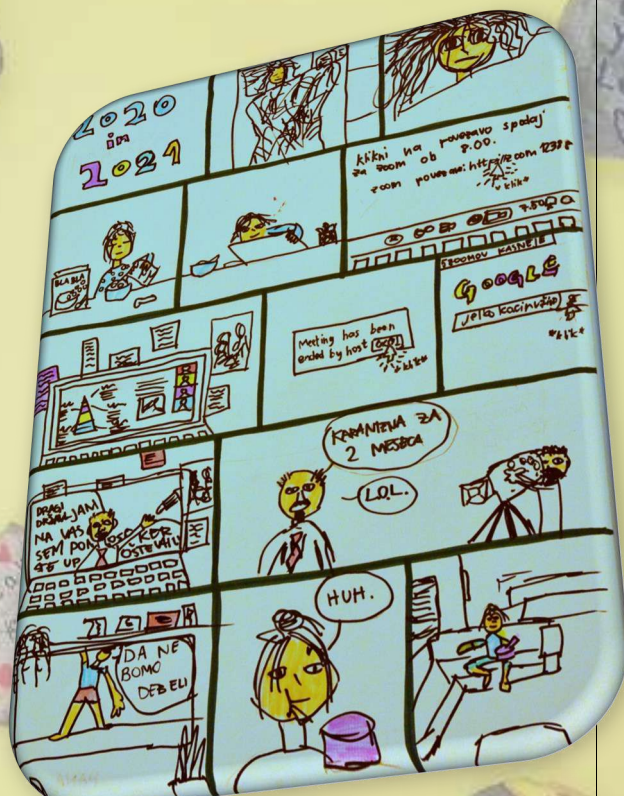 2020
in
2021
klikni na povezavo spodaj
za zoom ob 8.00.
zoom povezavi: https//zoom 1238
*klik*
7.50
BLA BLA
ZOOMOV KASNEJE
GOOGLE
*klik*
Meeting has been
ended by host
*klik*
KARANTENA ZA
2 MESECA
LOL.
DRAGI
DRŽAVLJANI
NA VAS
SEM PONOSO
KER
STE UP
OŠTEVALI
HUH.
DA NE
BOMO
DEBELI